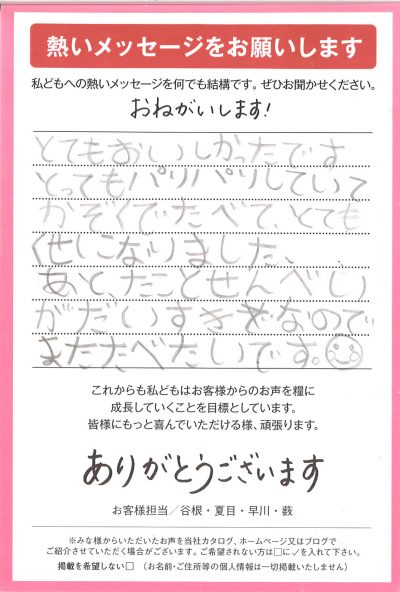 熱いメッセージをお願いします
私どもへの熱いメッセージを何でも結構です。ぜひお聞かせください。
おねがいします!
とてもおいしかったです
とってもパリパリしていて
かぞくでたべて、とても
くせになりました、
あと、たこせんべい
がだいすきなので
またたべたいです。
これからも私どもはお客様からのお声を糧に
成長していくことを目標としています。
皆様にもっと喜んでいただける様、頑張ります。
ありがとうございます
お客様担当／谷根・夏目・早川・薮
※みな様からいただいたお声を当社カタログ、ホームページ又はブログで
ご紹介させていただく場合がございます。ご希望されない方は□に✓を入れて下さい。
掲載を希望しない□ （お名前・ご住所等の個人情報は一切掲載いたしません）